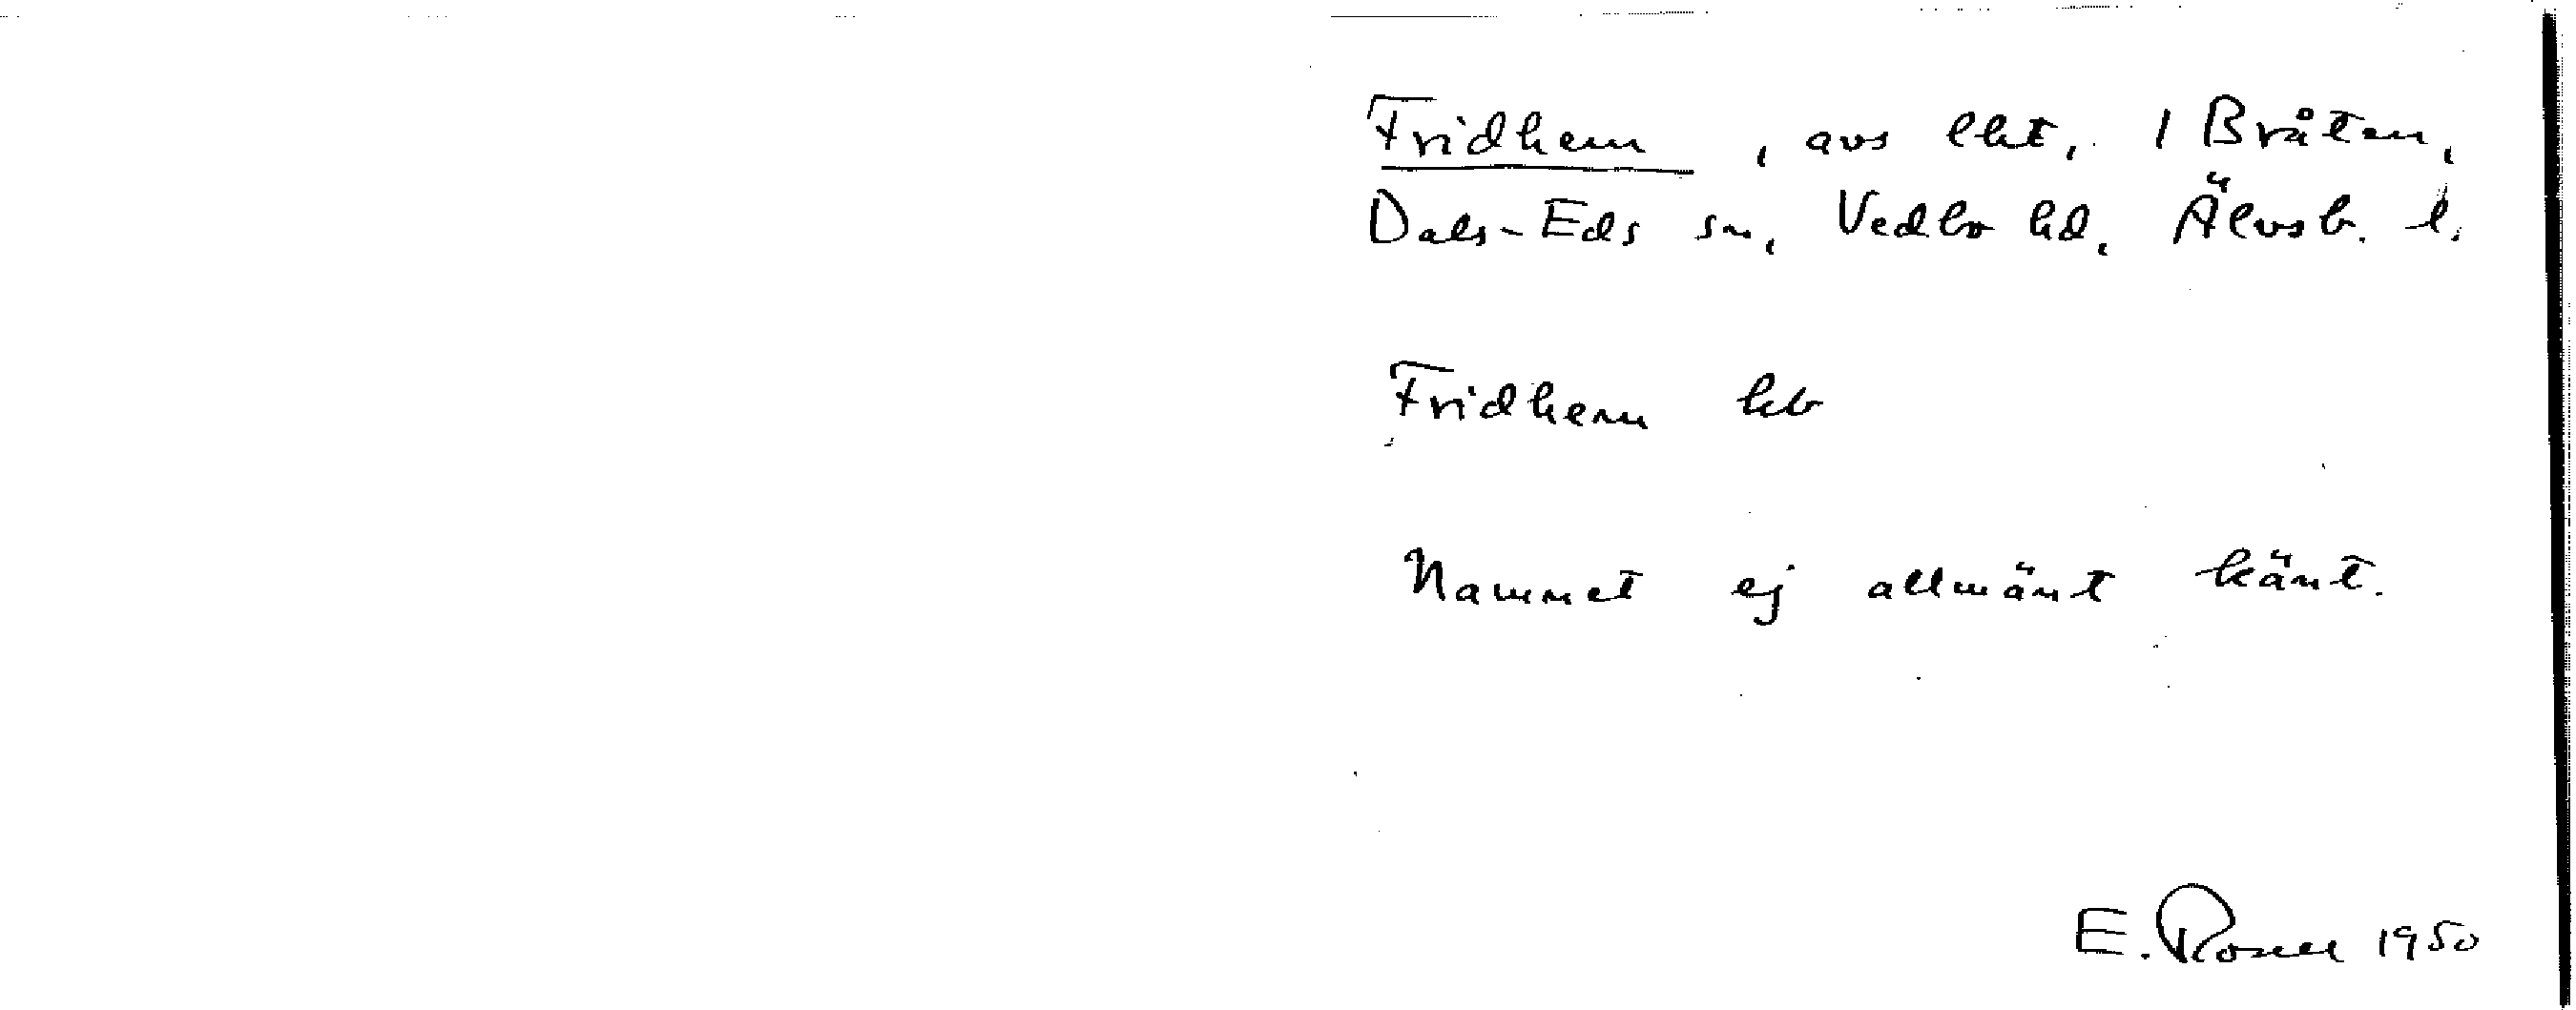 Fridhem, avs lht, 1 Bråten,
Dals-Eds sn, Vedbo hd, Älvsb. l.
Fridhem kb
Namnet ej allmänt känt.
E. Rosell 1950